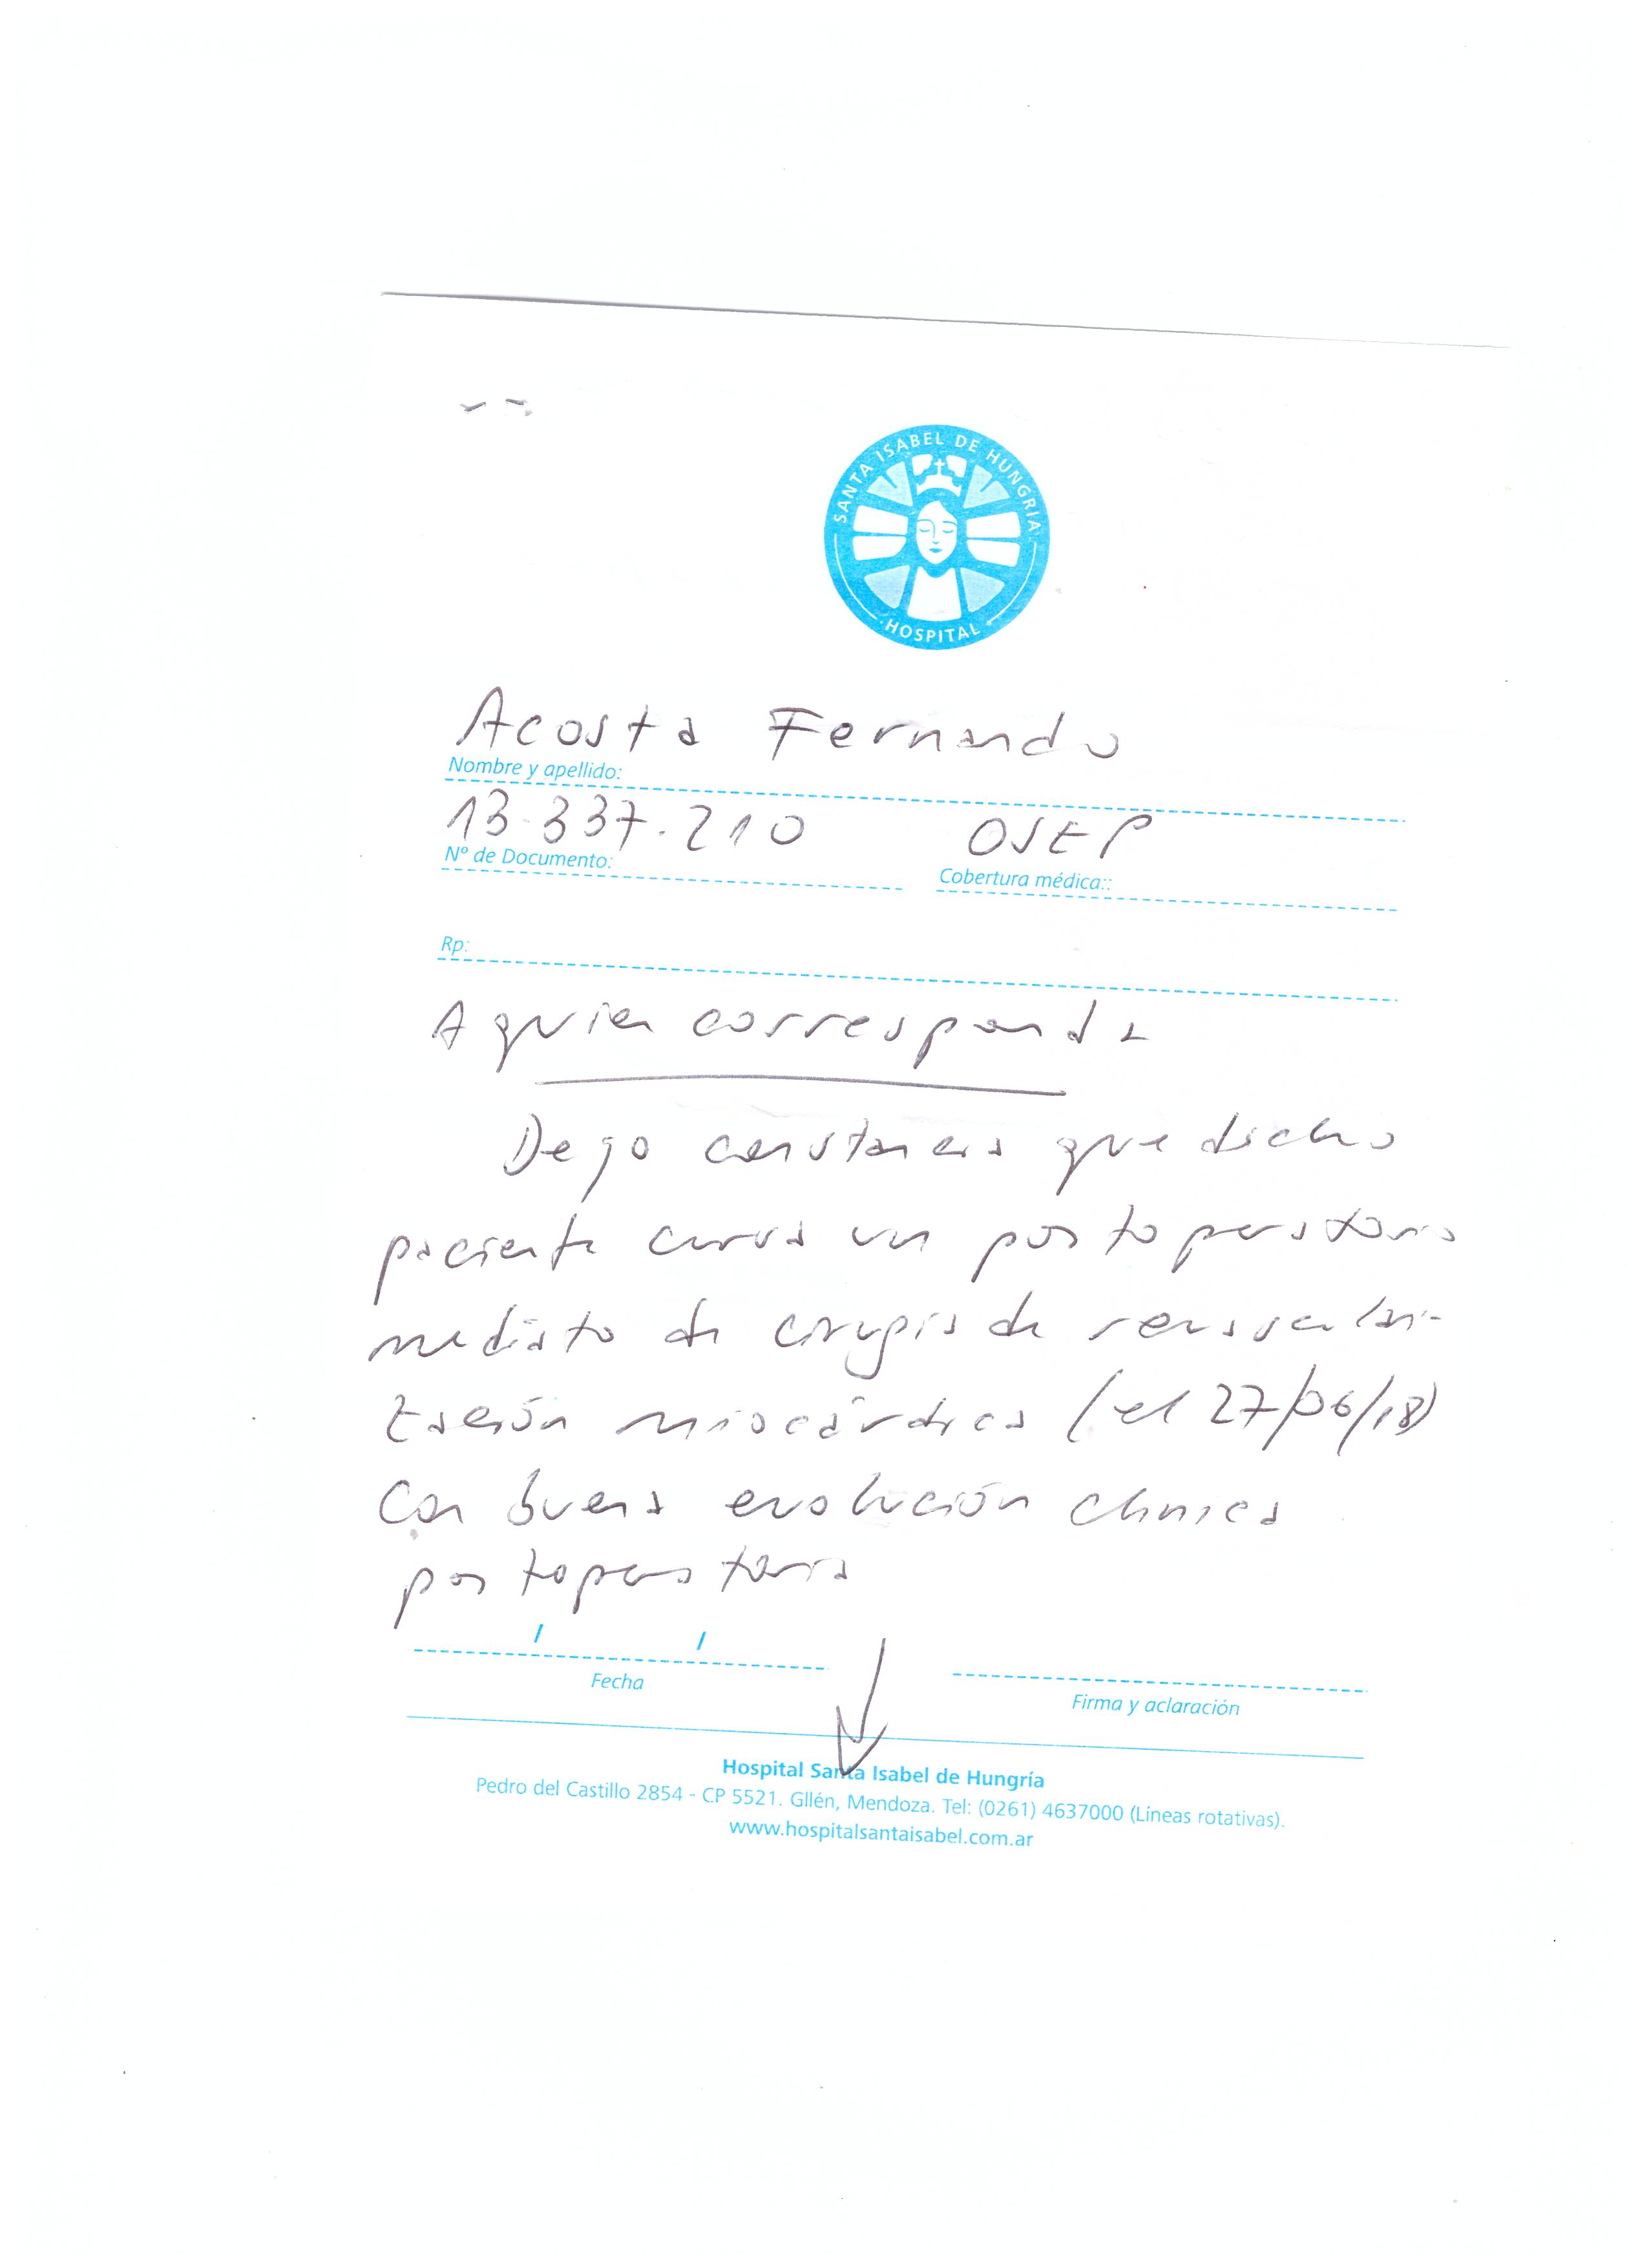 SANTA ISABEL DE HUNGRIA
HOSPITAL
Acosta Fernando
Nombre y apellido:
13.337.210 OSEP
Nº de Documento: Cobertura médica::
Rp:
A quien corresponda
Dejo constancia que dicho
paciente cursa un postoperatorio
mediato de cirugía de revasculari-
zación miocárdica (el 27/06/18)
Con buena evolución clínica
postoperatoria
/ /
Fecha Firma y aclaración
Hospital Santa Isabel de Hungría
Pedro del Castillo 2854 - CP 5521. Gllén, Mendoza. Tel: (0261) 4637000 (Líneas rotativas).
www.hospitalsantaisabel.com.ar